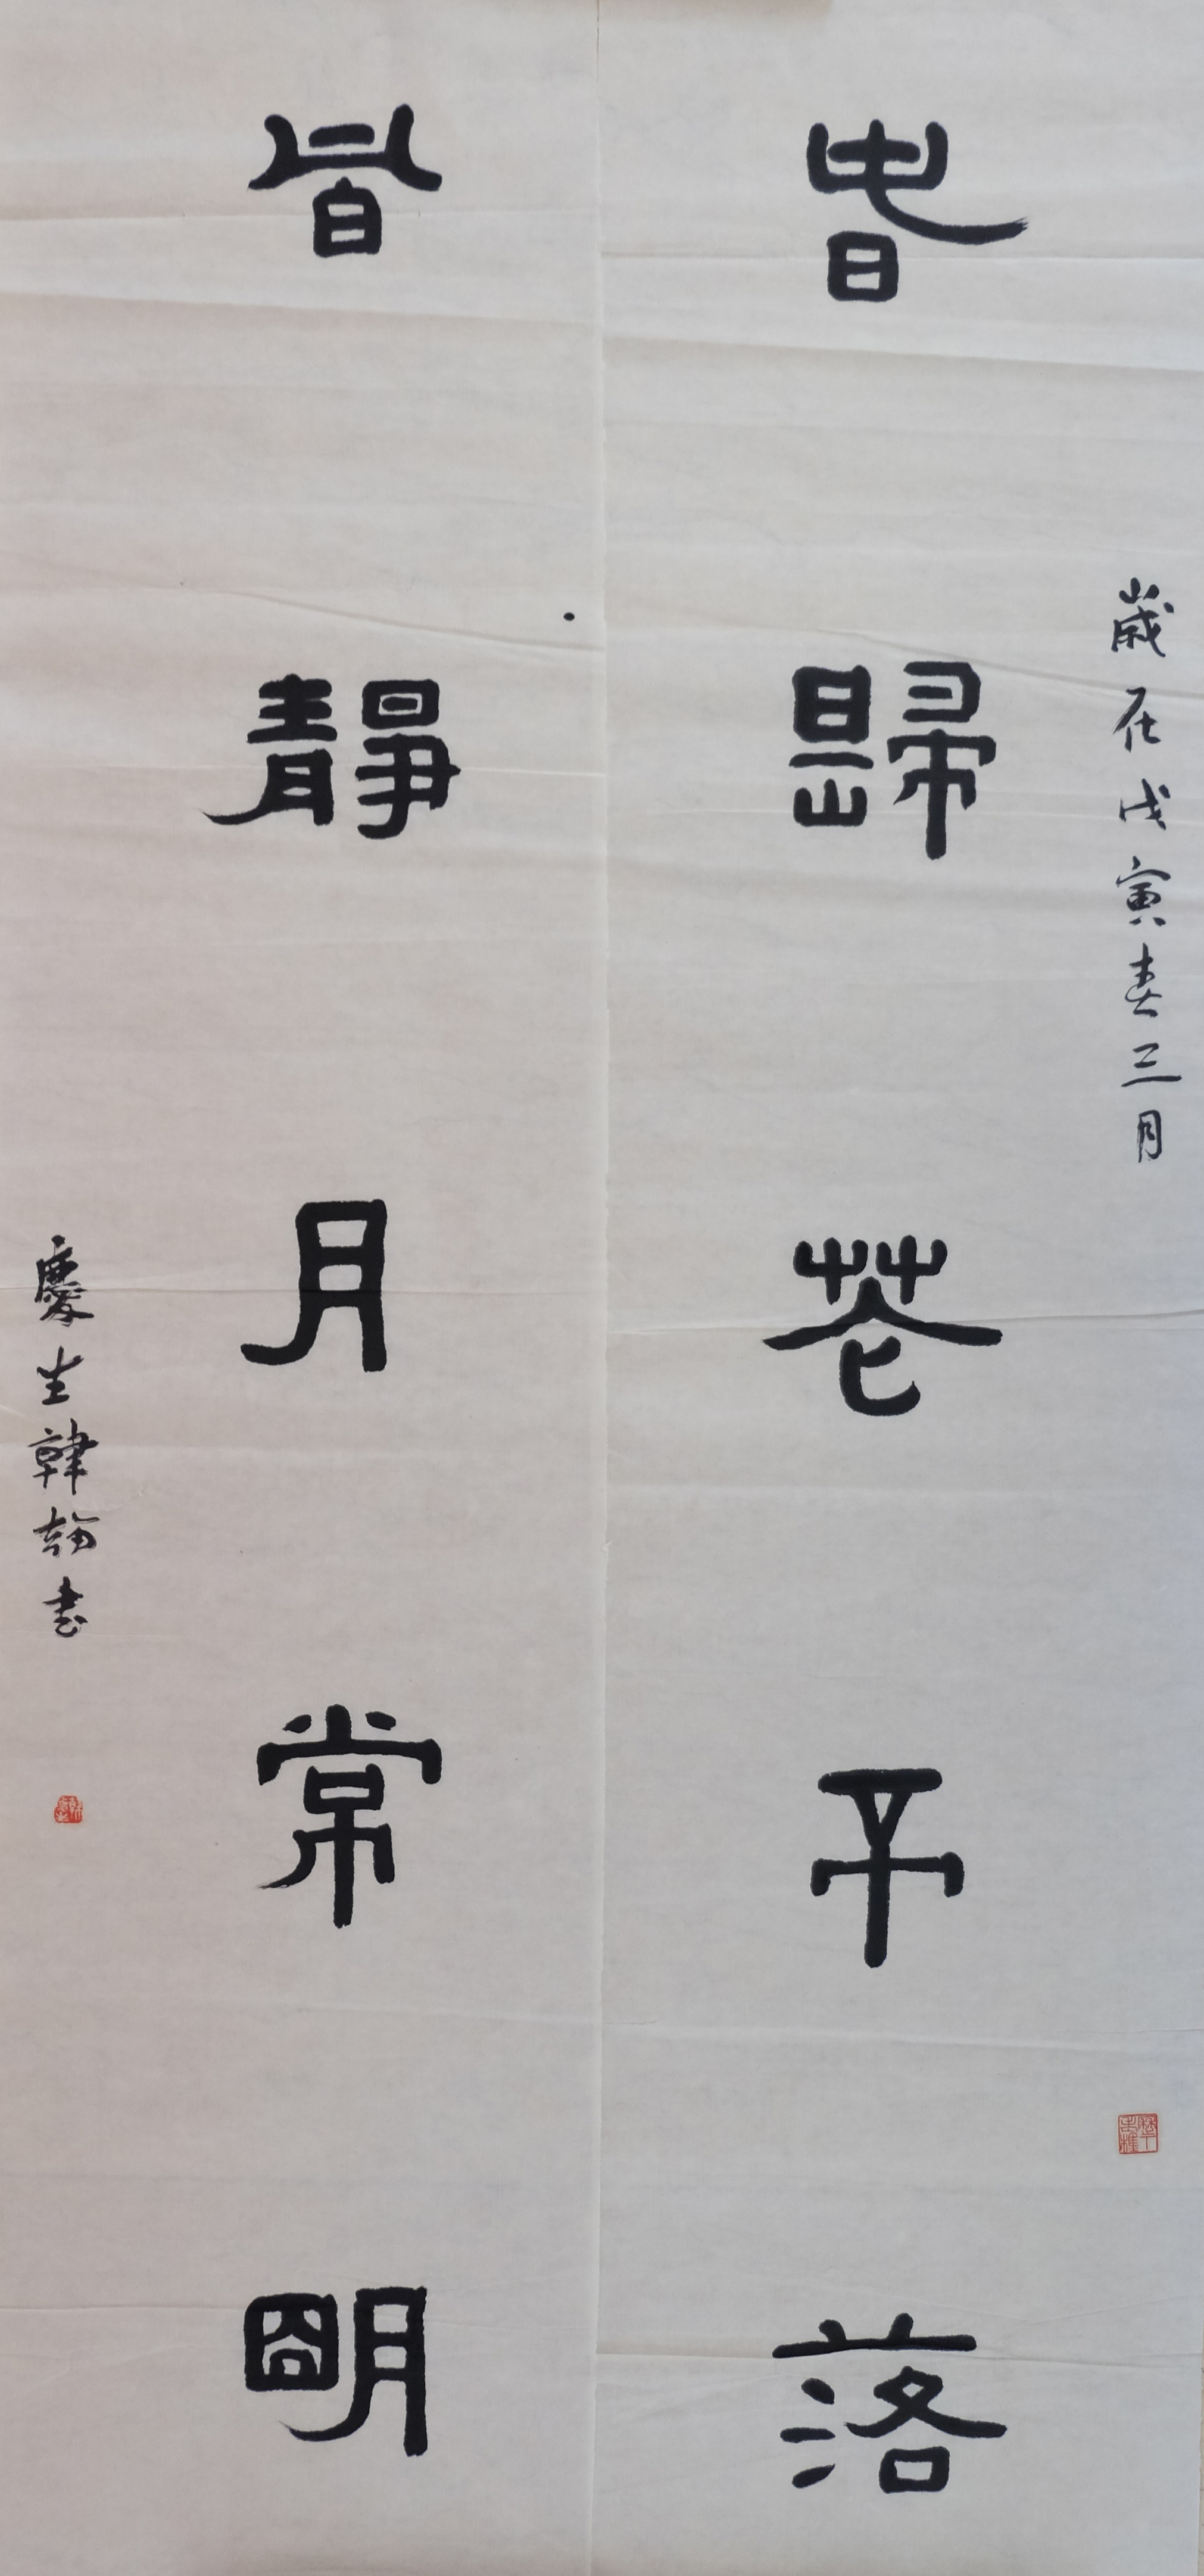 歲在戊寅春三月
春歸花不落
風靜月常明
慶生韓书